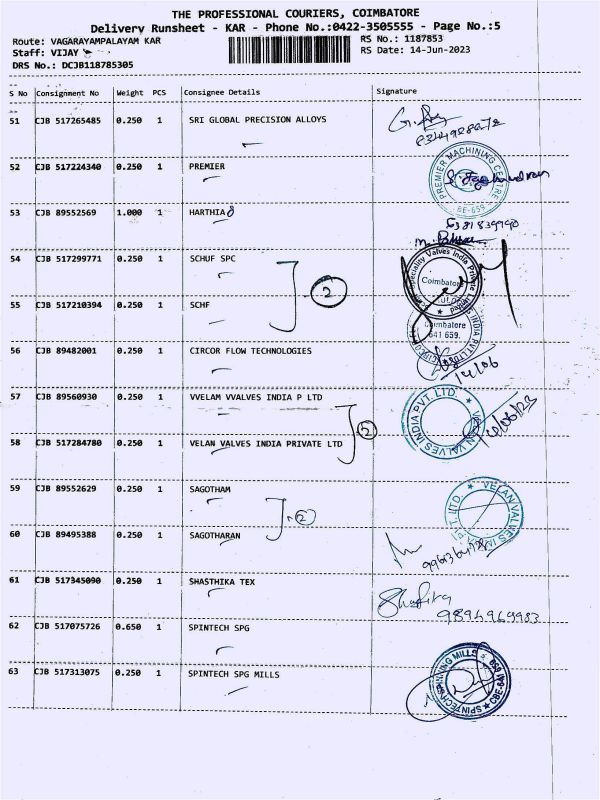 THE PROFESSIONAL COURIERS, COIMBATORE
Delivery Runsheet - KAR - Phone No.:0422-3505555 - Page No.:5
Route: VAGARAYAMPALAYAM KAR
RS No.: 1187853
Staff: VIJAY
RS Date: 14-Jun-2023
DRS No.: DCJB118785305
S No Consignment No Weight PCS Consignee Details Signature
51 CJB 517265485 0.250 1 SRI GLOBAL PRECISION ALLOYS
52 CJB 517224340 0.250 1 PREMIER
PREMIER MACHINING CENTRE
BE-659
53 CJB 89552569 1.000 1 HARTHIA
54 CJB 517299771 0.250 1 SCHUF SPC
Speciality Valves India Private Limited
Coimbatore
2
55 CJB 517210394 0.250 1 SCHF
Coimbatore
641 659.
INDIA PVT LTD
56 CJB 89482001 0.250 1 CIRCOR FLOW TECHNOLOGIES
14/06
57 CJB 89560930 0.250 1 VVELAM VVALVES INDIA P LTD
VELAN VALVES INDIA PVT. LTD.
14/06/23
58 CJB 517284780 0.250 1 VELAN VALVES INDIA PRIVATE LTD
59 CJB 89552629 0.250 1 SAGOTHAM
VELAN VALVES INDIA PVT. LTD.
2
60 CJB 89495388 0.250 1 SAGOTHARAN
61 CJB 517345090 0.250 1 SHASTHIKA TEX
9894969983
62 CJB 517075726 0.650 1 SPINTECH SPG
63 CJB 517313075 0.250 1 SPINTECH SPG MILLS
SPINTECH SPINNING MILLS